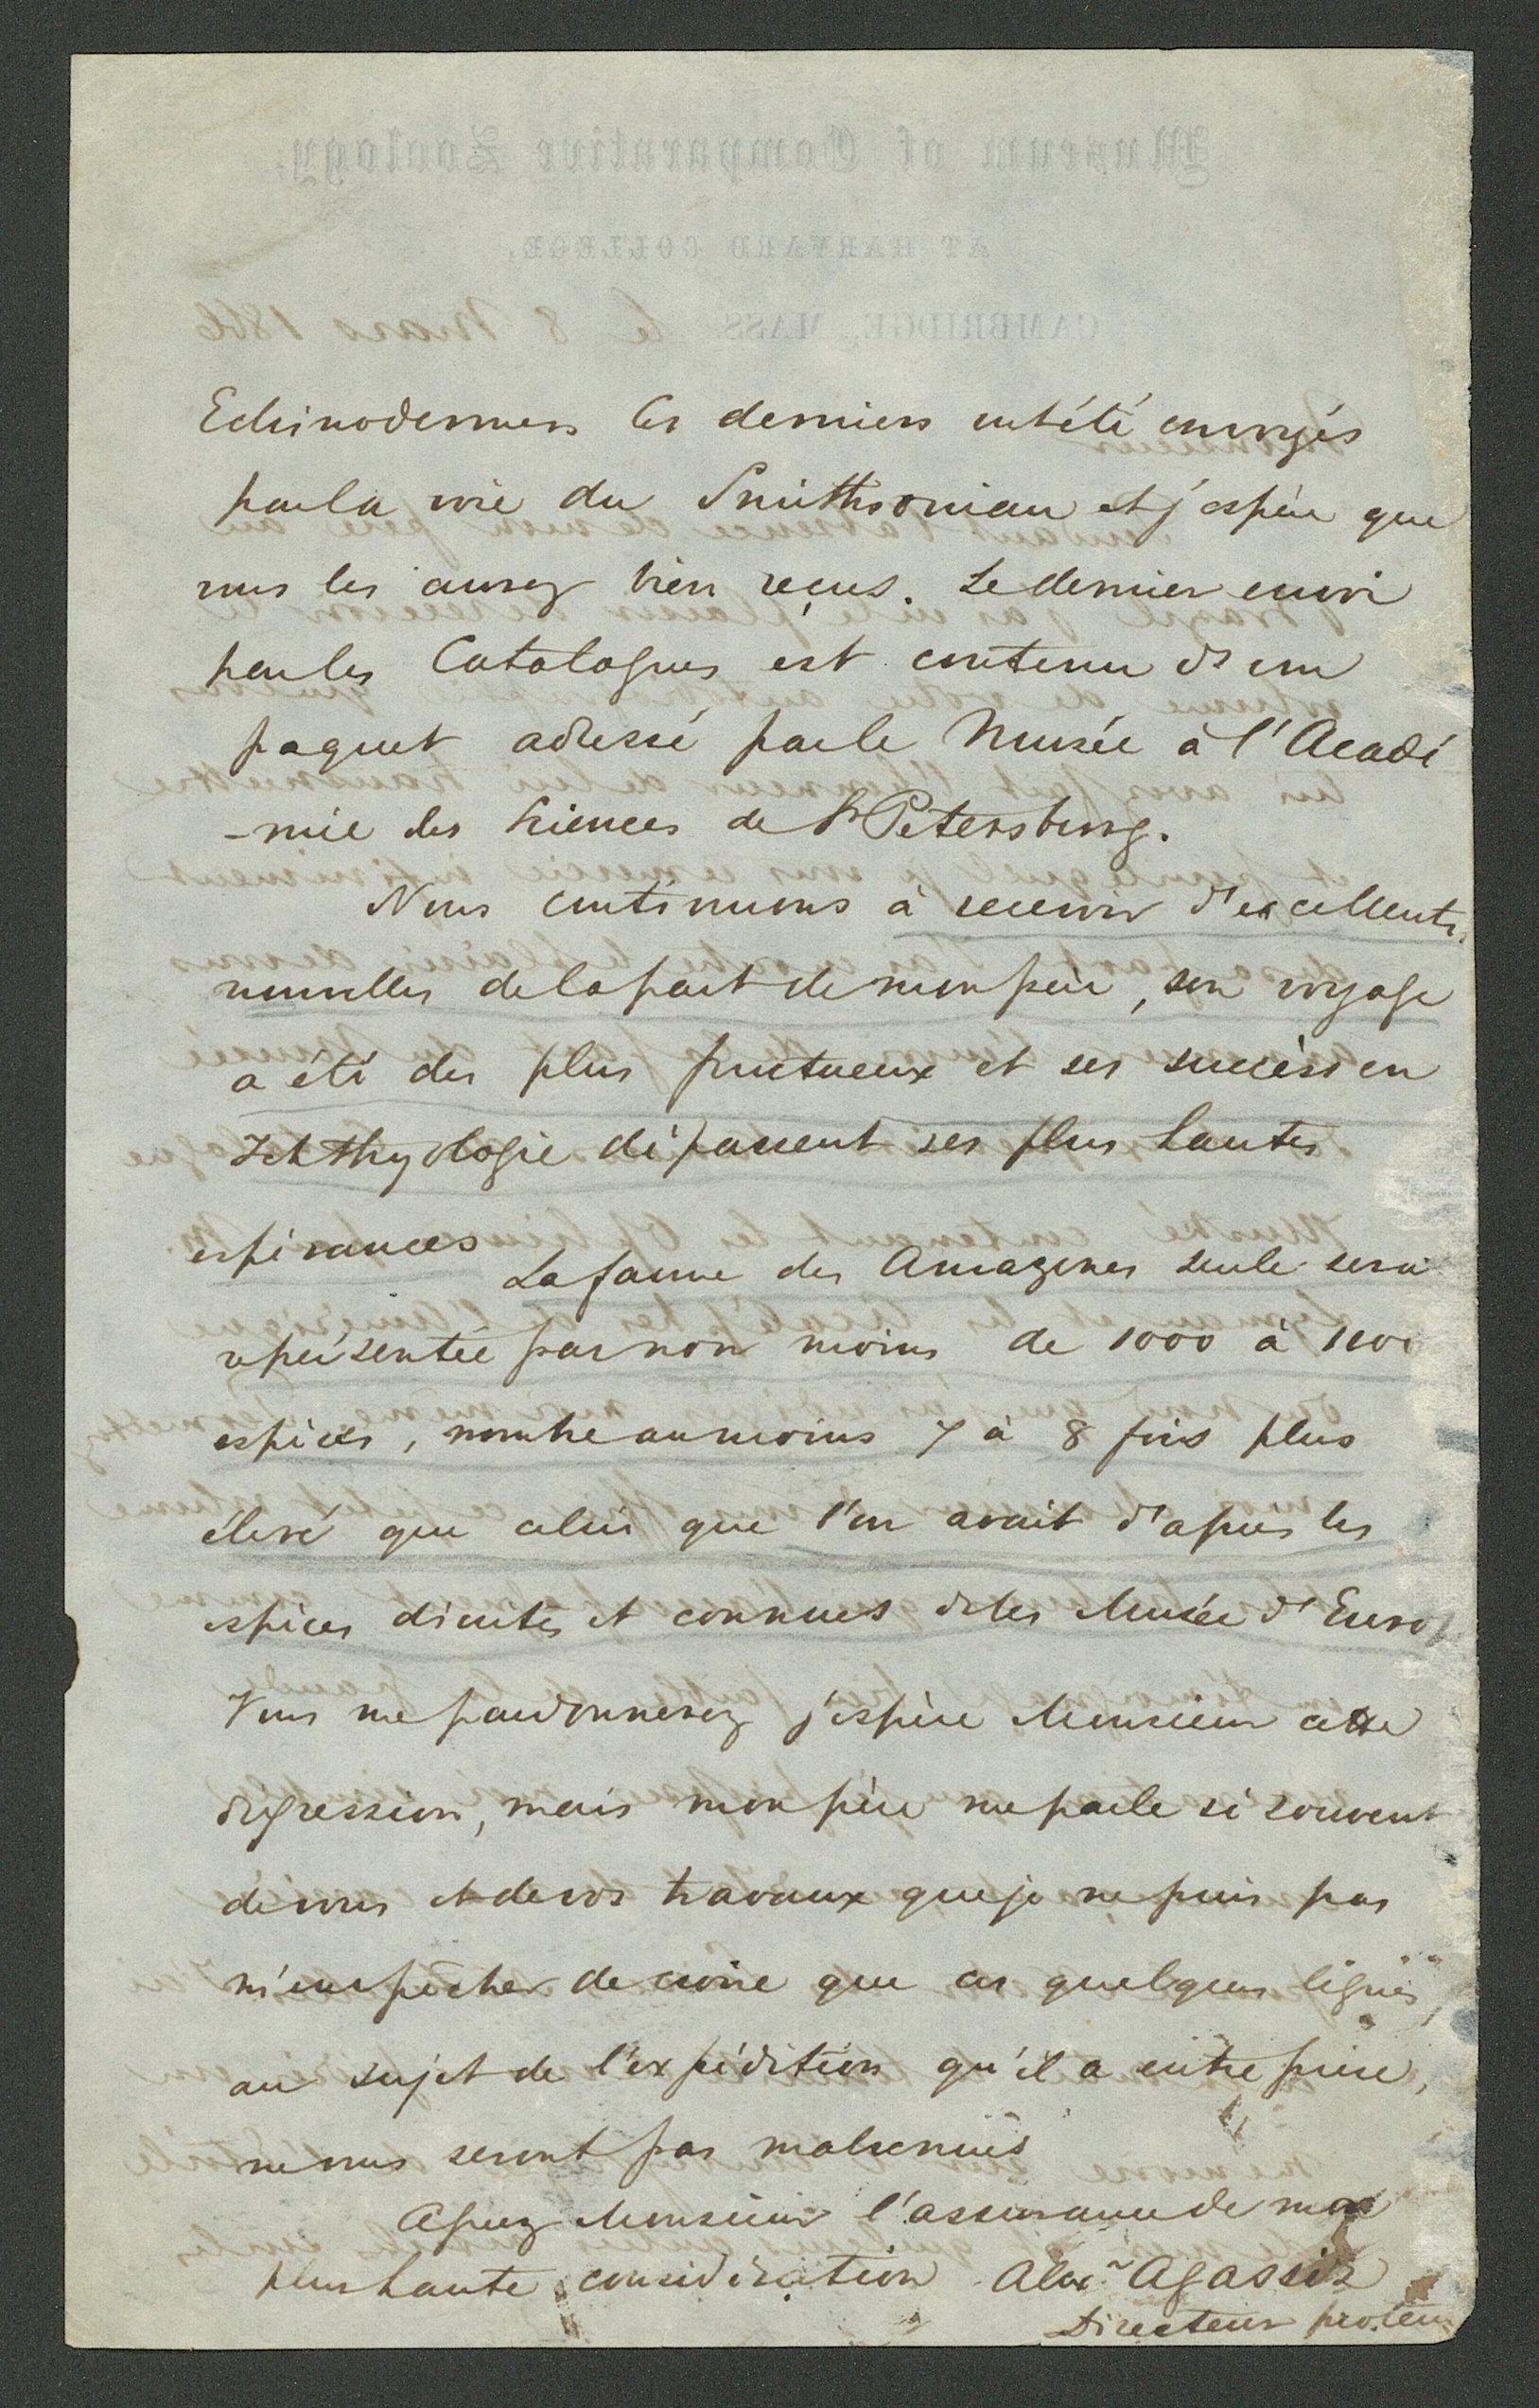 Echinodermes les derniers ont été envoyés
par la voie du Smithsonian et j'espère que
vous les aurez bien reçus. Le dernier envoi
par les Catalogues est contenu ds un
paquet adressé par le Musée à l'Acadé
-mie des Sciences de St Petersburg.
Nous continuons à recevoir d'excellentes
nouvelles de la part de mon père, son voyage
a été des plus fructueux et ses succès en
Ichthyologie dépassent ses plus hautes
espérances La faune des Amazones seule sera
représentée par non moins de 1000 à 1100
espèces, nombre au moins 7 à 8 fois plus
élevé que celui que l'on avait d'après les
espèces décrites et connues ds les Musée d'Europ
Vous me pardonnerez j'espère Monsieur cette
digression, mais mon père me parle si souvent
de vous et de vos travaux que je ne puis pas
m'empêcher de croire que ces quelques lignes,
au sujet de l'expédition qu'il a entreprise,
ne vous seront pas malvenues
Agréez Monsieur l'assurance de ma
plus haute considération Alex. Agassiz
Directeur pro tem